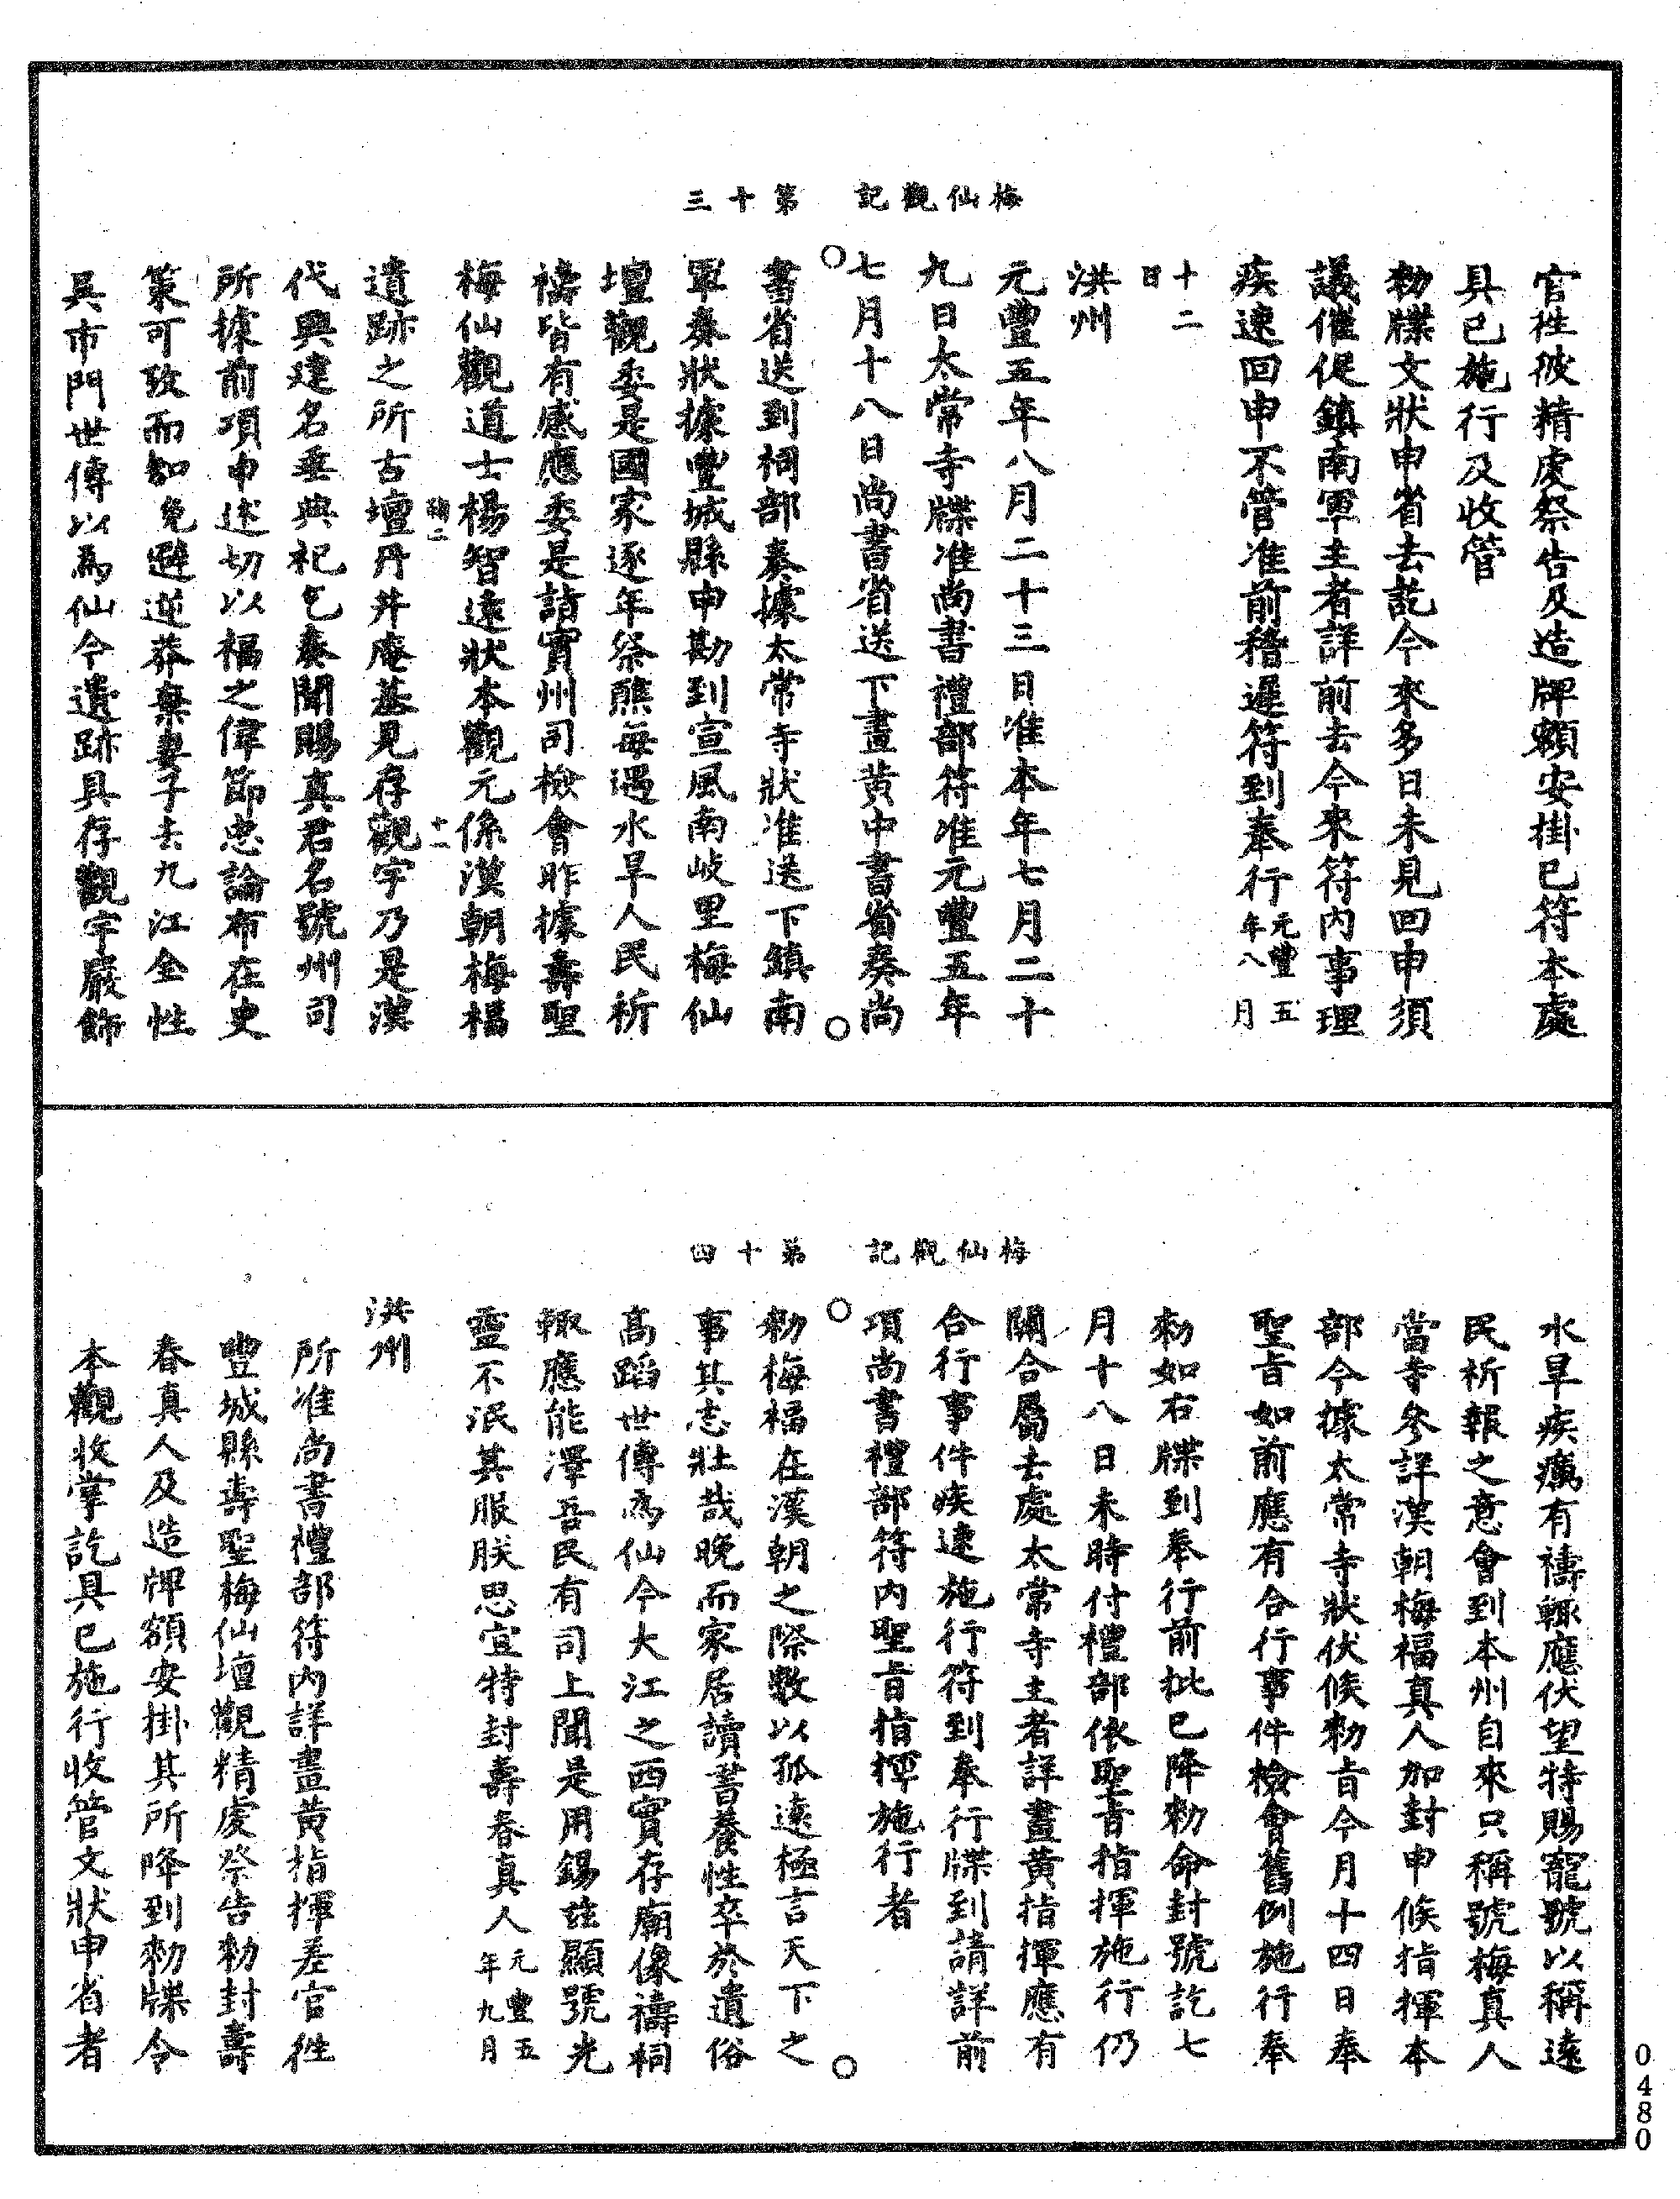 梅仙觀記　第十三
官徃彼精虔祭告及造牌額安掛巳符本處
具已施行及收管
勑牒文狀申省去訖今來多日未見回申須
議催促鎮南軍主者詳前去今來符內事理
疾速回申不管准前稽遲符到奉行元豐五年八月
十二日
洪州
元豐五年八月二十三日准本年七月二十
九日太常寺牒准尚書禮部符准元豐五年
七月十八日尚書省送下畫黃中書省奏尚
書省送到祠部奏據太常寺狀准送下鎮南
軍奏狀據豐城縣申勘到宣風南岐里梅仙
壇觀委是國家逐年祭醮每遇水旱人民祈
禱皆有感應委是詣實州司檢會昨據壽聖
梅仙觀道士楊智遠狀本觀元係漢朝梅福
遺跡之所古壇丹井庵基見存觀宇乃是漢
代興建名垂典祀乞奏聞賜真君名號州司
所據前項申述切以福之偉節忠論布在史
策可攷而知免避逆莽棄妻子去九江全性
吳市門世傳以為仙今遺跡具存觀宇嚴飾
梅仙觀記　第十四
水旱疾癘有禱輒應伏望特賜寵號以稱遠
民祈報之意會到本州自來只稱號梅真人
當寺參詳漢朝梅福真人加封申候指揮本
部今據太常寺狀伏候勑旨今月十四日奉
聖旨如前應有合行事件檢會舊例施行奉
勑如右牒到奉行前批巳降勑命封號訖七
月十八日未時付禮部依聖旨指揮施行仍
關合屬去處太常寺主者詳畫黃指揮應有
合行事件疾速施行符到奉行牒到請詳前
項尚書禮部符內聖旨指揮施行者
勑梅福在漢朝之際數以孤遠極言天下之
事其志壯哉晚而家居讀書養性卒於遺俗
高蹈世傳為仙今大江之西實存廟像禱祠
輒應能澤吾民有司上聞是用錫茲顯號光
靈不泯其服朕思宜特封壽春真人元豐五年九月
洪州
所准尚書禮部符內詳畫黃指揮差官徃
豐城縣壽聖梅仙壇觀精虔祭告勑封壽
春真人及造牌額安掛其所降到勑牒令
本觀收掌訖具巳施行收管文狀申省者
0480